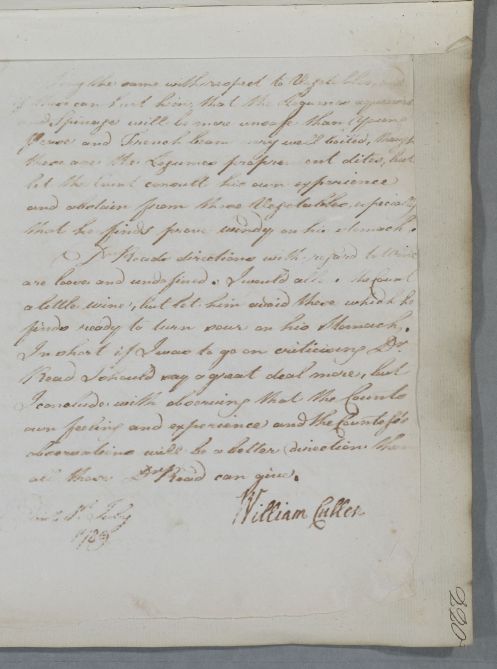 the same with respect to Vegetables
can tell him, that the Legumes aqueuses
and spinage will be more unsafe than young
Pease and French beans very well boiled, though
these are the Legumes proprement dites, but
let the Count consult his own experience
and abstain from those Vegetables, especially
that he finds prove windy on his stomach.
Dr Reads directions with regard to Wine
are loose and undefined. I would allow the Count
a little wine, but let him avoid those which he
finds ready to turn sour on his Stomach.
In short if I was to go on criticising Dr.
Read I should say a great deal more, but
I conclude with observing that the Counts
own feeling and experience and the Countess's
observations will be a better direction than
all those Dr Read can give.
William Cullen
July
220